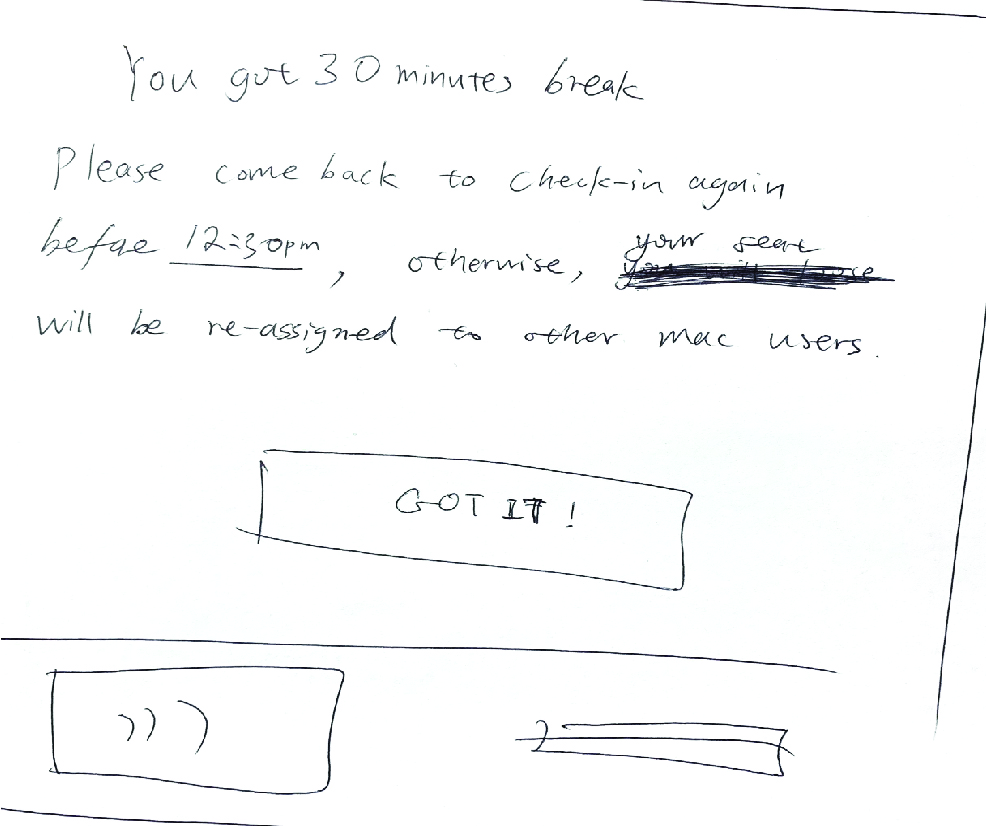 You got 30 minutes break
Please come back to check-in again
before 12:30pm, otherwise, your seat
will be re-assigned to other mac users.
GOT IT!